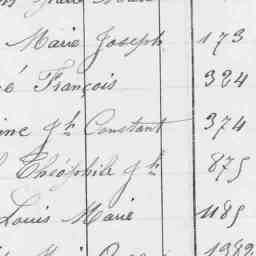 Marie Joseph 173
é François 324
ine Jh Constant 374
Théophile Jh 875
Louis Marie 1185
1382